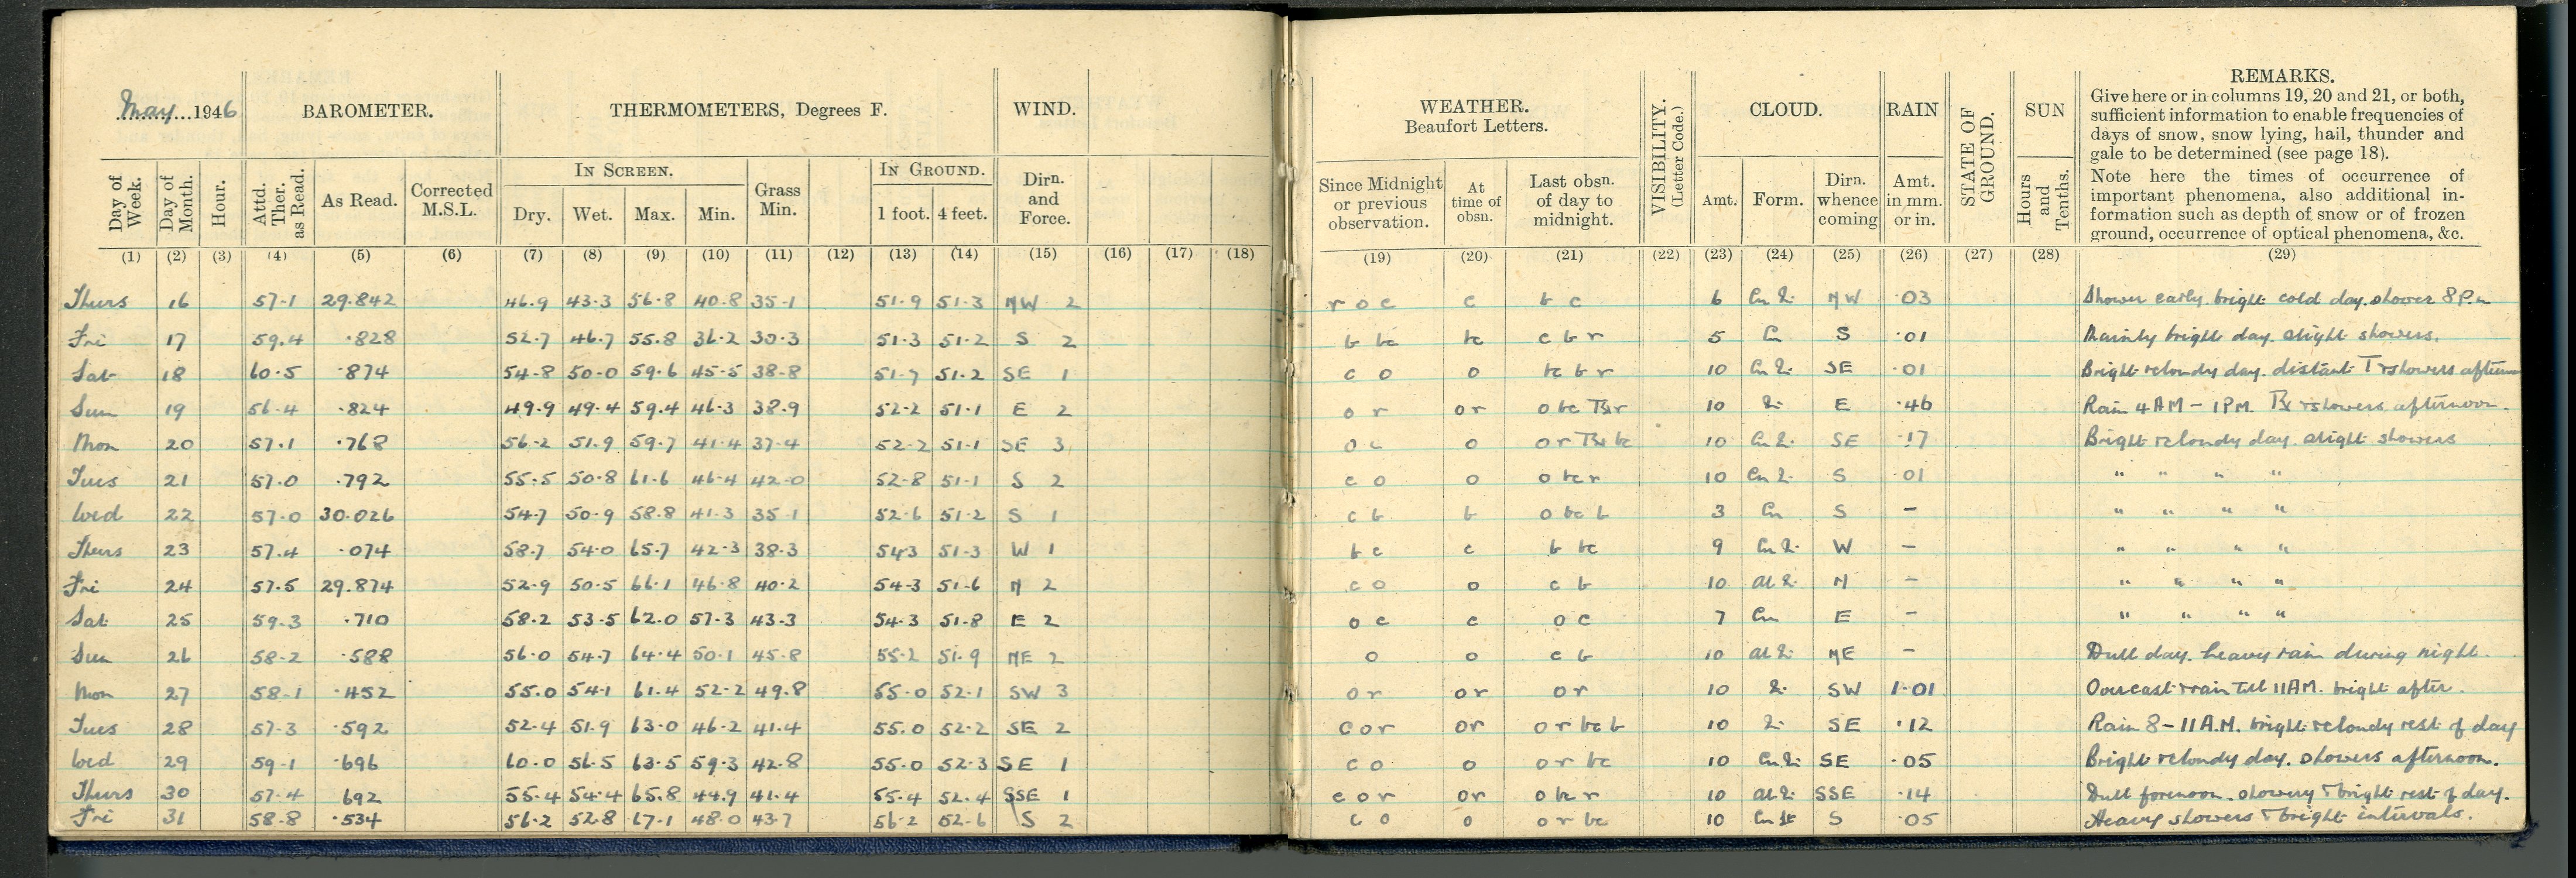 May 1946 BAROMETER. THERMOMETERS, Degrees F. WIND.
IN SCREEN. IN GROUND.
Day of Week. Day of Month. Hour. Attd. Ther. as Read. As Read. Corrected M.S.L. Dry. Wet. Max. Min. Grass Min. 1 foot. 4 feet. Dirn. and Force.
(1) (2) (3) (4) (5) (6) (7) (8) (9) (10) (11) (12) (13) (14) (15) (16) (17) (18)
Thurs 16 57.1 29.842 46.9 43.3 56.8 40.8 35.1 51.9 51.3 NW 2
Fri 17 59.4 .828 52.7 46.7 55.8 36.2 30.3 51.3 51.2 S 2
Sat 18 60.5 .874 54.8 50.0 59.6 45.5 38.8 51.7 51.2 SE 1
Sun 19 56.4 .824 49.9 49.4 59.4 46.3 38.9 52.2 51.1 E 2
Mon 20 57.1 .768 56.2 51.9 59.7 41.4 37.4 52.2 51.1 SE 3
Tues 21 57.0 .792 55.5 50.8 61.6 46.4 42.0 52.8 51.1 S 2
Wed 22 57.0 30.026 54.7 50.9 58.8 41.3 35.1 52.6 51.2 S 1
Thurs 23 57.4 .074 58.7 54.0 65.7 42.3 38.3 543 51.3 W 1
Fri 24 57.5 29.874 52.9 50.5 66.1 46.8 40.2 54.3 51.6 N 2
Sat 25 59.3 .710 58.2 53.5 62.0 57.3 43.3 54.3 51.8 E 2
Sun 26 58.2 .588 56.0 54.7 64.4 50.1 45.8 55.2 51.9 NE 2
Mon 27 58.1 .452 55.0 54.1 61.4 52.2 49.8 55.0 52.1 SW 3
Tues 28 57.3 .592 52.4 51.9 63.0 46.2 41.4 55.0 52.2 SE 2
Wed 29 59.1 .696 60.0 56.5 63.5 59.3 42.8 55.0 52.3 SE 1
Thurs 30 57.4 692 55.4 54.4 65.8 44.9 41.4 55.4 52.4 SSE 1
Fri 31 58.8 .534 56.2 52.8 67.1 48.0 43.7 56.2 52.6 S 2
WEATHER. Beaufort Letters. VISIBILITY. (Letter Code.) CLOUD. RAIN STATE OF GROUND. SUN REMARKS.
Give here or in columns 19, 20 and 21, or both,
sufficient information to enable frequencies of
days of snow, snow lying, hail, thunder and
gale to be determined (see page 18).
Note here the times of occurrence of
important phenomena, also additional in-
formation such as depth of snow or of frozen
ground, occurrence of optical phenomena, &c.
Since Midnight or previous observation. At time of obsn. Last obsn. of day to midnight. Amt. Form. Dirn. whence coming Amt. in mm. or in. Hours and Tenths.
(19) (20) (21) (22) (23) (24) (25) (26) (27) (28) (29)
r o c c b c 6 NW .03 Shower early. bright cold day. shower 8 P.m
b bc bc c b r 5 Cu S .01 Mainly bright day. slight showers.
c o o bc b r 10 SE .01 Bright & cloudy day. distant T & showers
o r or o bc 10 E .46 Rain 4 AM - 1 PM. showers afternoon.
o c o o r bc 10 SE .17 Bright & cloudy day. slight showers
c o o o bc r 10 S .01 " " " "
c b b o bc b 3 Cu S - " " " "
b c c b bc 9 W - " " " "
c o o c b 10 N - " " " "
o c c o c 7 Cu E - " " " "
o o c b 10 NE - Dull day. heavy rain during night.
o r or or 10 SW 1.01 Overcast & rain till 11 AM. bright after.
c o r or o r bc b 10 SE .12 Rain 8 - 11 A.M. bright & cloudy rest of day
c o o o r bc 10 SE .05 Bright & cloudy day. showers afternoon.
c o r or 10 SSE .14 Dull forenoon. showery & bright rest of day.
c o o o r bc 10 S .05 Heavy showers & bright intervals.